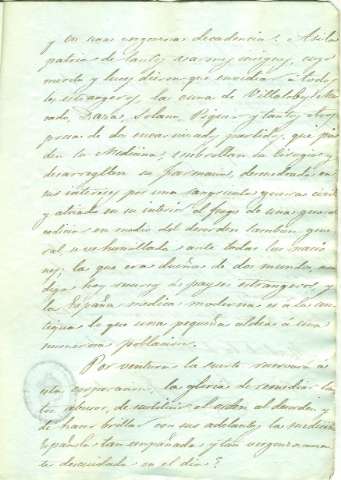 y en una vergonzosa decadencia. Asi la
patria de tantos varones insignes, cuyo
merito y luces dieron que envidiar a todos
los estrangeros, la cuna de Villalobos, Mer
cado, Laza, Solano, Piquer y tantos otros
presa de dos encarnizados partidos, que
den la Medicina, embrollan la Cirugia y
desarreglan la farmacia, desmedrada en
sus intereses por una sangrienta guerra civil
y atizado en su interior el fuego de una
en medio del desorden tambien
val ve humillada ante todas las nacio
nes; la que era dueña de dos mundos, men
diga hoy sucesos de payses estrangeros y
la España medica moderna es a la an
tigua lo que una pequeña aldea a una
numerosa poblacion.
Por ventura la suerte reservará a
esta corporacion, la gloria de remediar tan
tos abusos, de sustituir el orden al desorden y
de hacer brillar con sus adelantos la medicina
Española tan empañada y tan vergonzosamen
te descuidada en el dia?